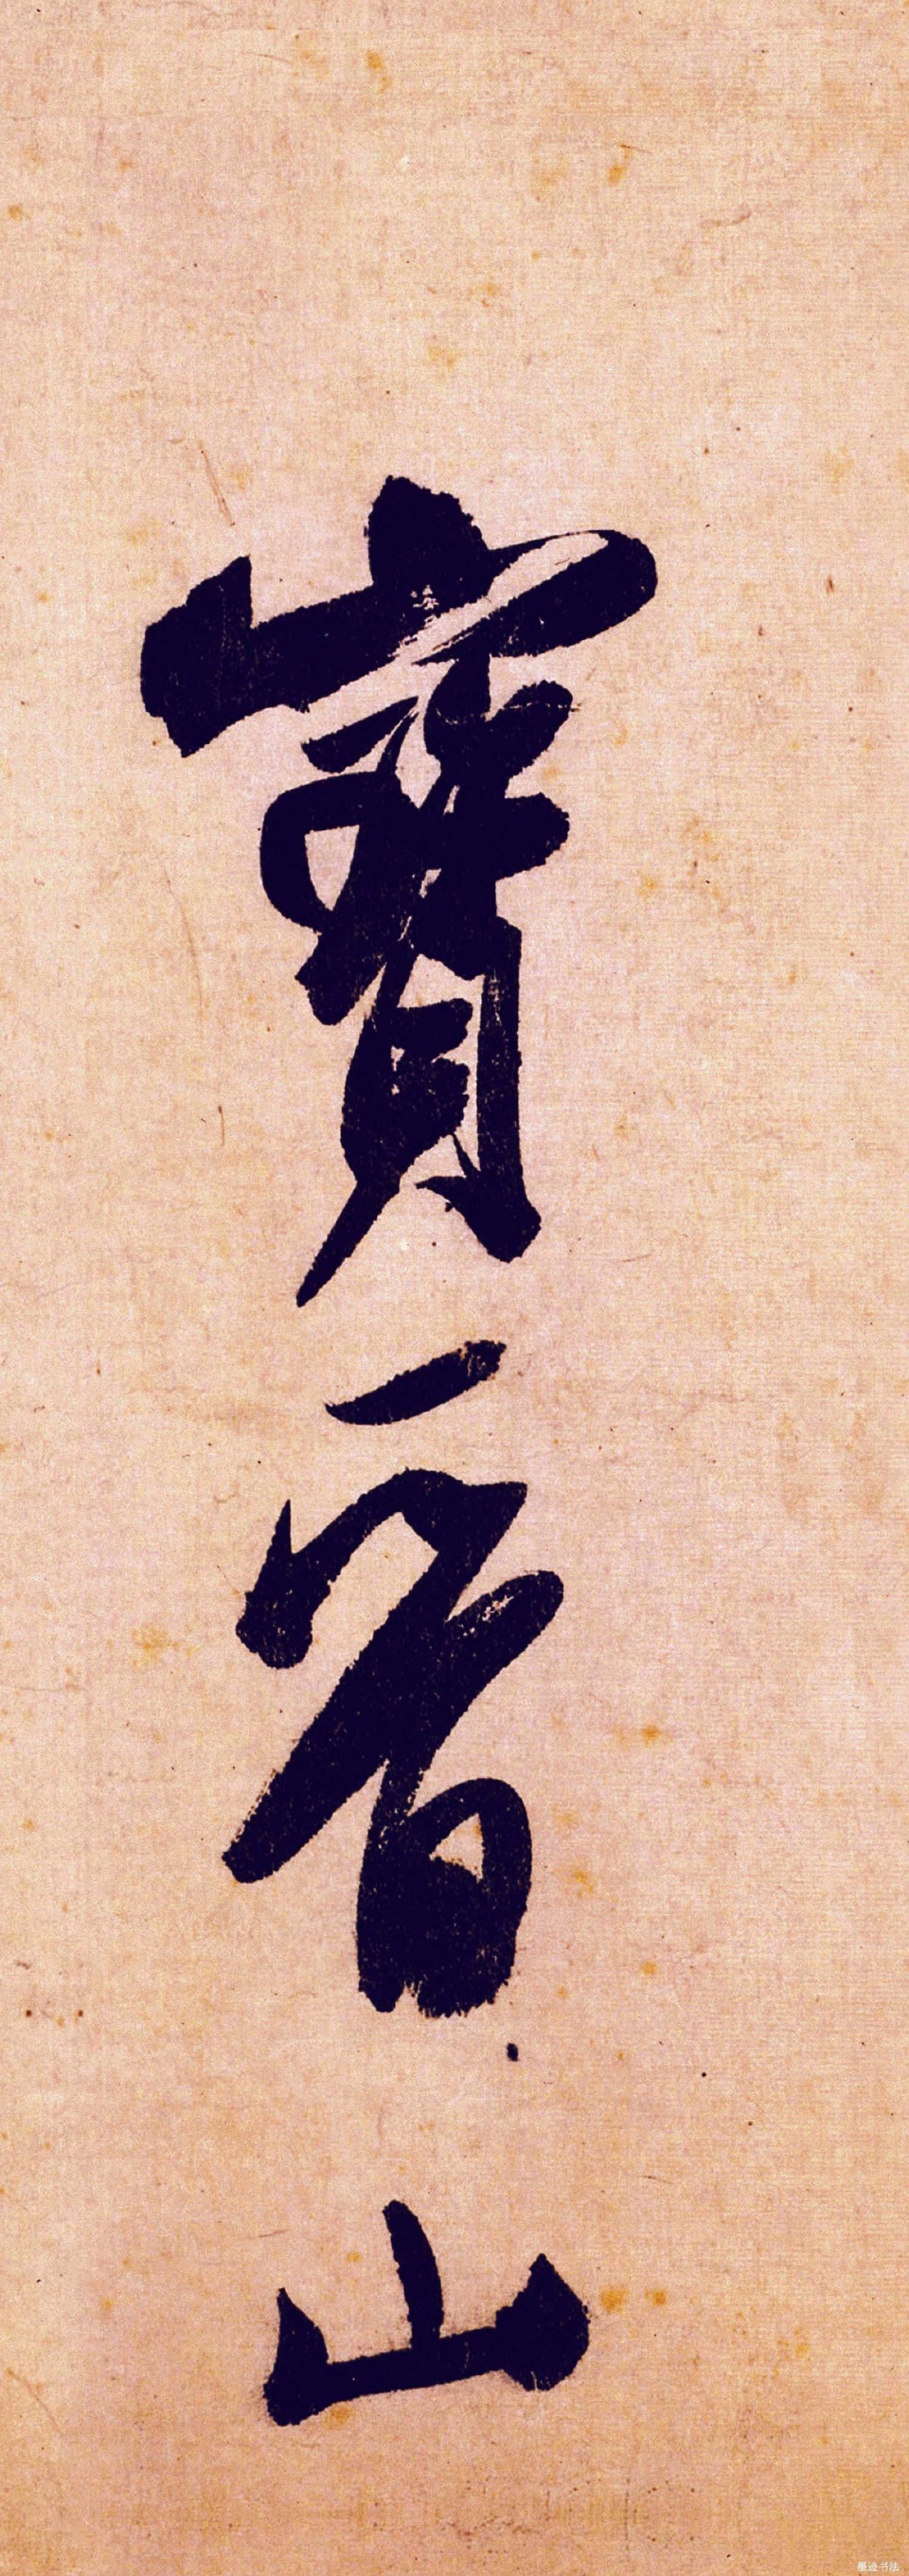 寶晉山
墨迹书法